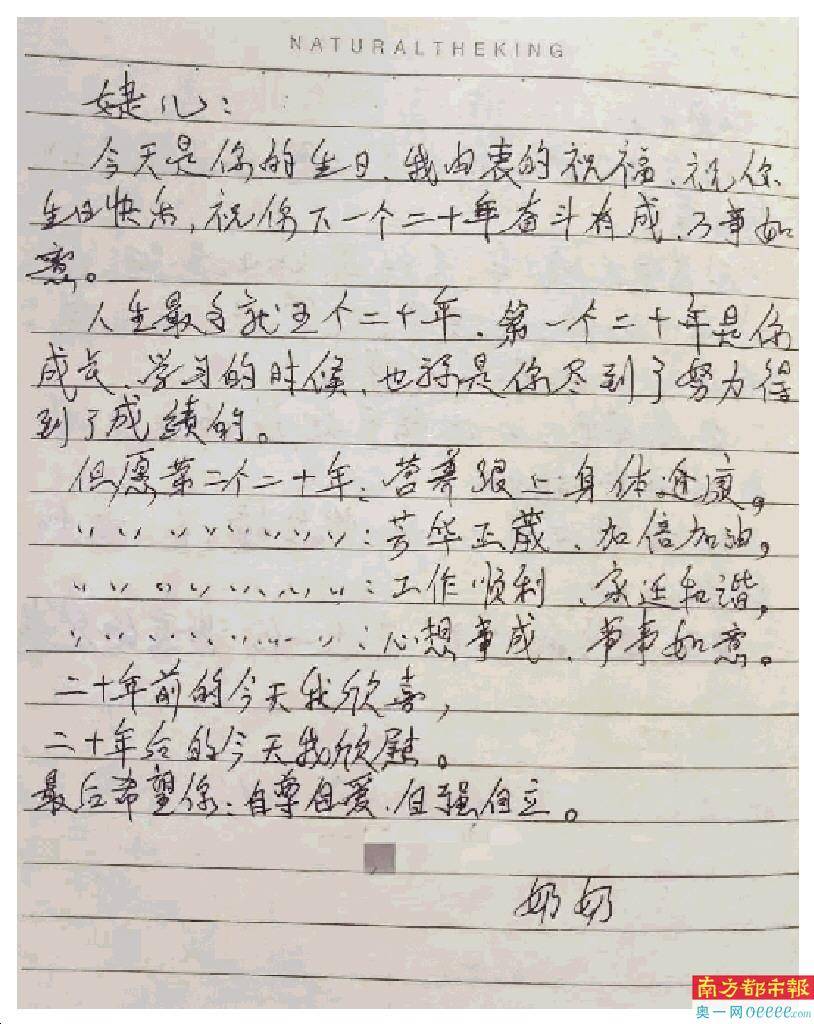 NATURALTHEKING
婕儿：
今天是你的生日、我由衷的祝福、祝你
生日快乐，祝你下一个二十年奋斗有成、万事如
意。
人生最多就五个二十年、第一个二十年是你
成长、学习的时候、也算是你尽到了努力得
到了成绩的。
但愿第二个二十年：营养跟上身体健康。
〃〃〃〃〃〃〃：芳华正茂、加倍加油，
〃〃〃〃〃〃〃：工作顺利、家廷和谐，
〃〃〃〃〃〃〃：心想事成、事事如意。
二十年前的今天我欣喜，
二十年后的今天我欣慰。
最后希望你：自尊自爱、自强自立。
奶奶
南方都市報
奥一网oeeee.com